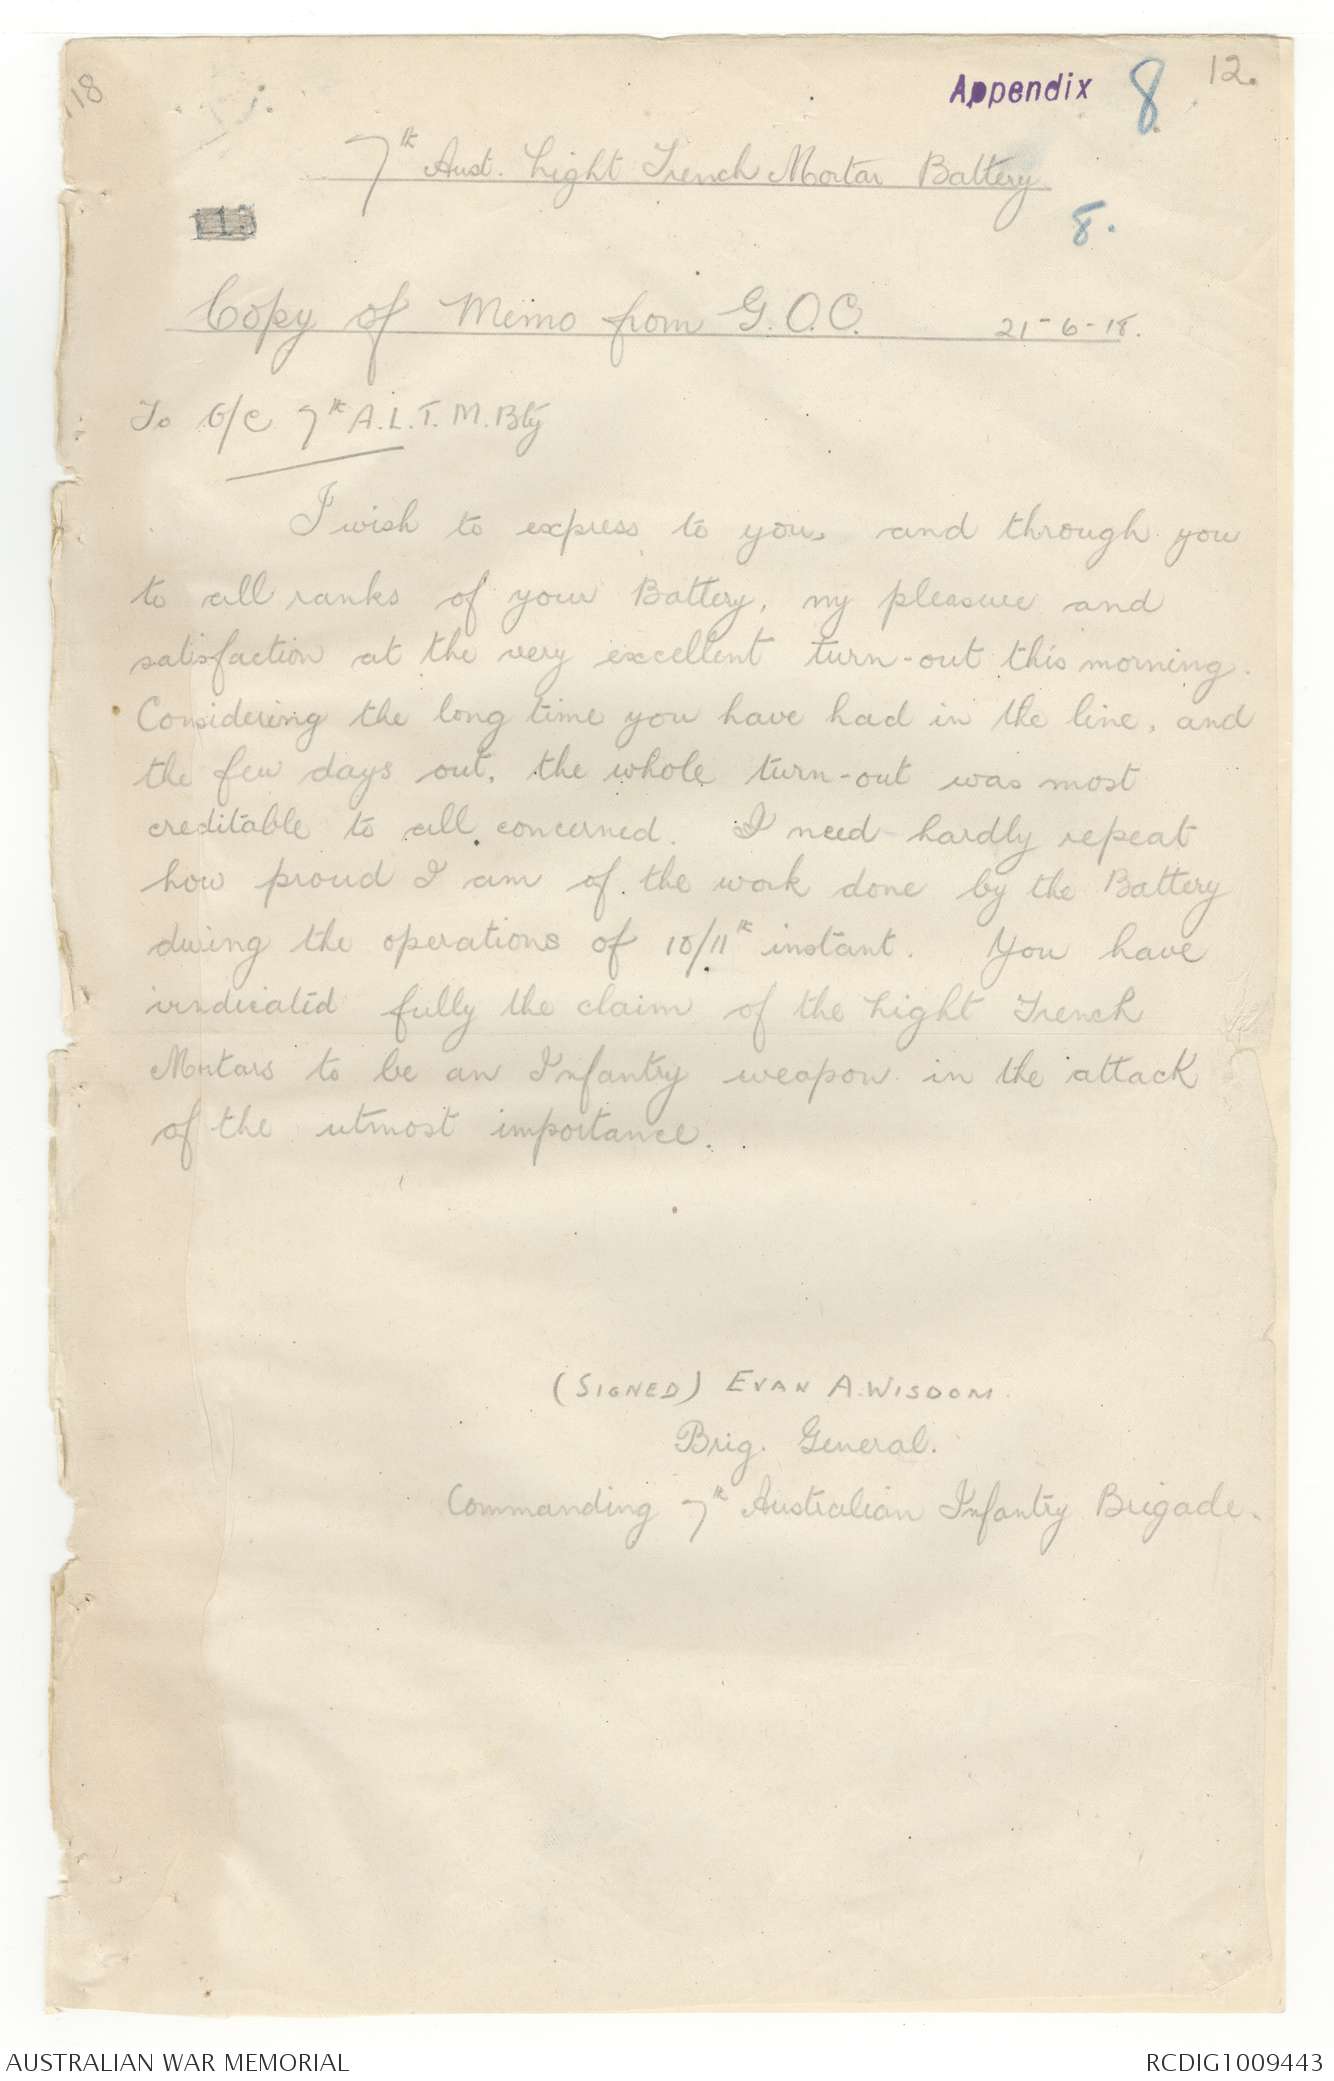 18
Appendix 8 12.
7th Aust. Light Trench Mortar Battery
113
8.
Copy of Memo from G.O.C. 21-6-18.
To O/C 7th A.L.T.M.Bty
I wish to express to you, and through you
to all ranks of your Battery, my pleasure and
satisfaction at the very excellent turn-out this morning.
Considering the long time you have had in the line, and
the few days out, the whole turn-out was most
creditable to all concerned. I need hardly repeat
how proud I am of the work done by the Battery
during the operations of 10/11th instant. You have
vindicated fully the claim of the Light Trench
Mortars to be an Infantry weapon in the attack
of the utmost importance.
(SIGNED) EVAN A. WISDOM.
Brig. General.
Commanding 7th Australian Infantry Brigade.
AUSTRALIAN WAR MEMORIAL RCDIG1009443